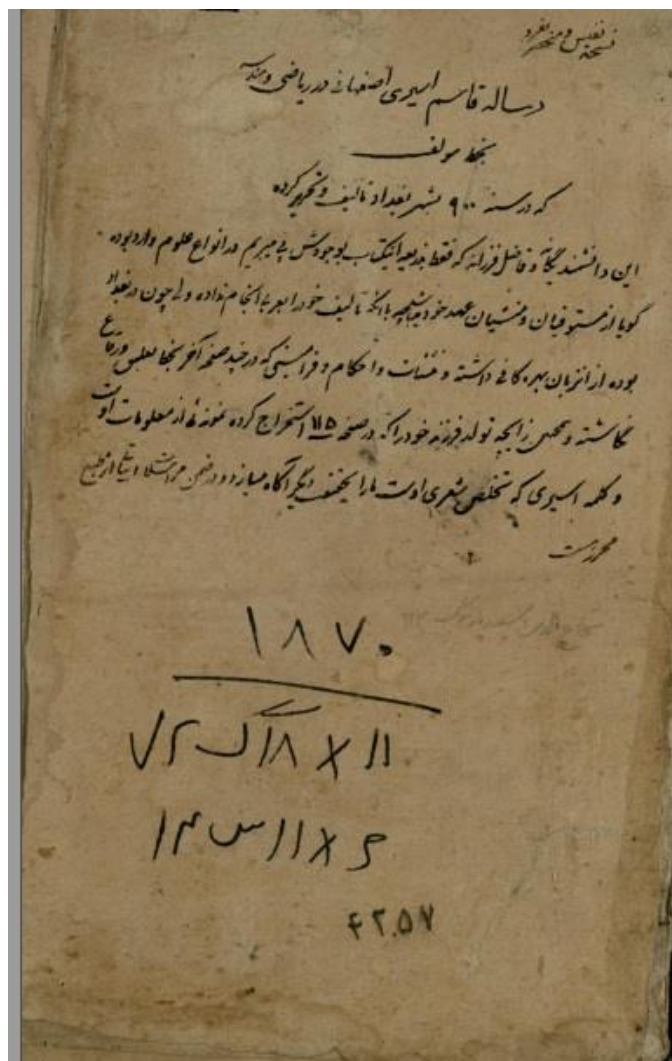 نسخه نفیس و منحصر بفرد
رساله قاسم اسیری اصفهانی در ریاضی و هندسه
بخط مولف
که در سنه ۹۰۰ بشهر بغداد تالیف و تحریر کرده
این دانشمند یگانه و فاضل فرزانه که فقط بذریعه این کتاب بوجودش پی میبریم در انواع علوم وارد بوده
گویا از مستوفیان و منشیان عهد خود تالیف خود را بعربی انجام نداده ولی چون در بغداد
بوده از آنزبان بهره کافی داشته و منشآت و احکام و فرامینی که در چند صفحه آخر
نگاشته و زایچه تولد فرزند خود را که در صفحه ۱۱۵ استخراج کرده نمونه از معلومات اوست
و کلمه اسیری که تخلص شعری اوست ما را دیگر آگاه میسازد و در ضمن
محرز است
۱۸۷۰
۱۱ × ۱۸ گ ۷۲
۶ × ۱۱ س ۱۴
۴۲۰۵۷